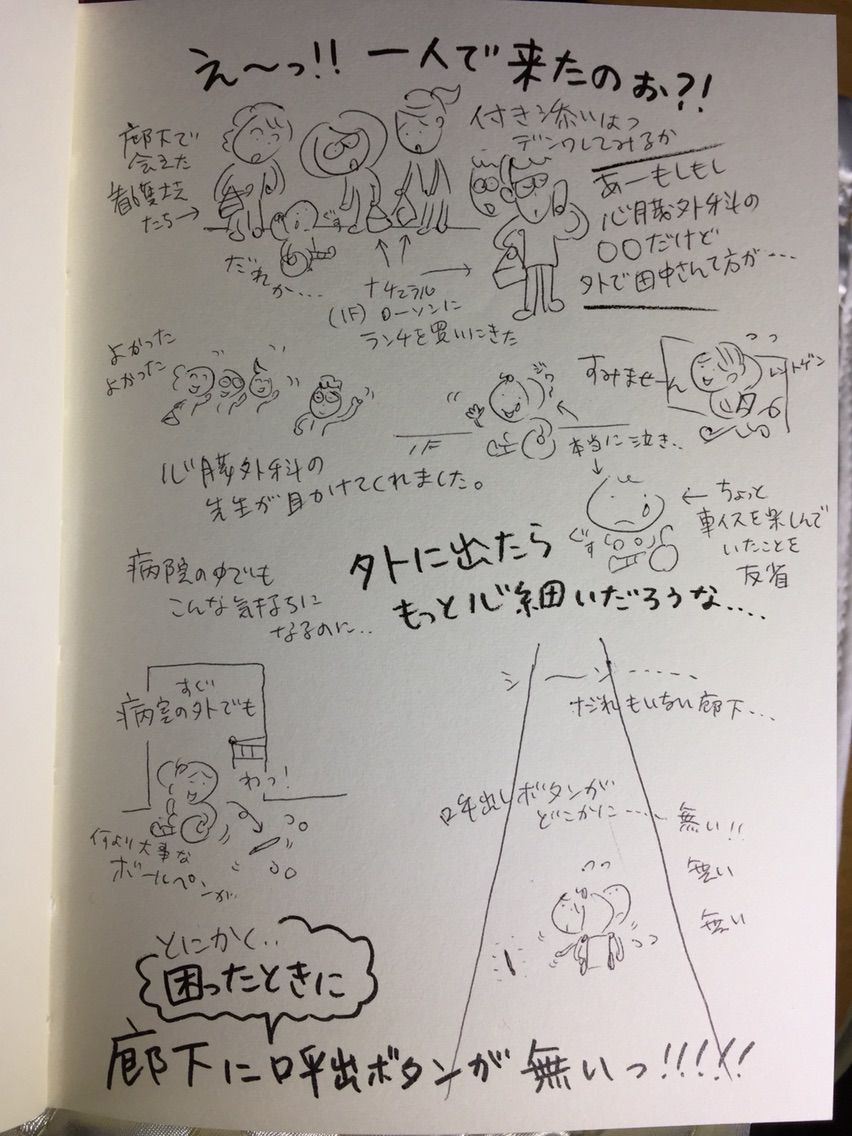 え〜っ!! 一人で来たのぉ?!
廊下で
会えた
看護士
たち→
付き添いはっ
デンワしてみるか
あーもしもし
心臓外科の
〇〇だけど
外で田中さんて方が・・・
ぐす
だれ
か・・・
ナチュラル
(1F) ローソンに
ランチを買いにきた
よかった
よかった
ジワ〜
すみませーん
レントゲン
1F
本当に泣き、、
心臓外科の
先生が助けてくれました。
ぐす
← ちょっと
車イスを楽しんで
いたことを
反省
病院の中でも
こんな気持ちに
なるのに・・
外に出たら
もっと心細いだろうな....
すぐ
病室の外でも
わっ!
何より大事な
ボールペンが、
シーン-----
だれもいない廊下・・・
呼出しボタンが
どこかに・・・・
無い!!
無い
無い
とにかく・・
困ったときに
廊下に呼出ボタンが無いっ!!!!!